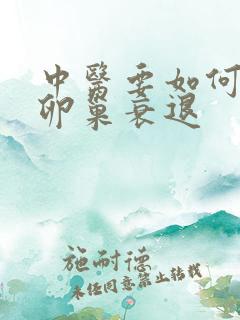 中醫要如何
卵巢衰退
施耐德
未任同意禁止转载